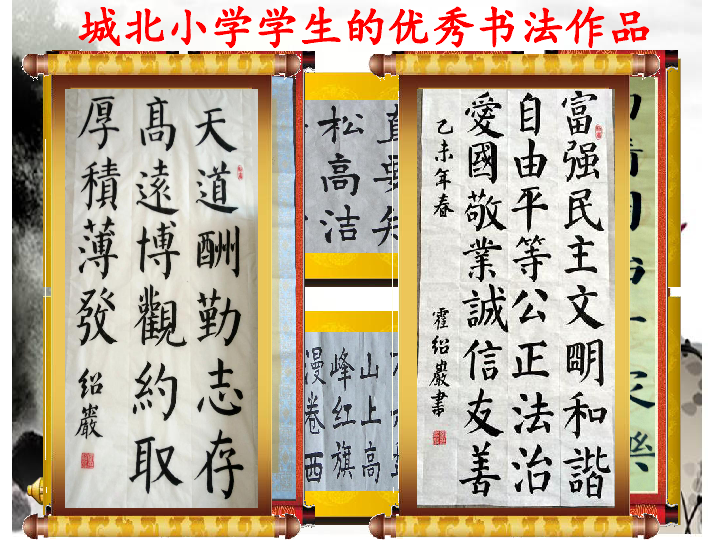 城北小学学生的优秀书法作品
天道酬勤志存
高遠博觀約取
厚積薄發
绍巖
松高洁
山上高
峰红旗
漫卷西
富强民主文明和諧
自由平等公正法治
愛國敬業誠信友善
乙未年春
霍绍巖書